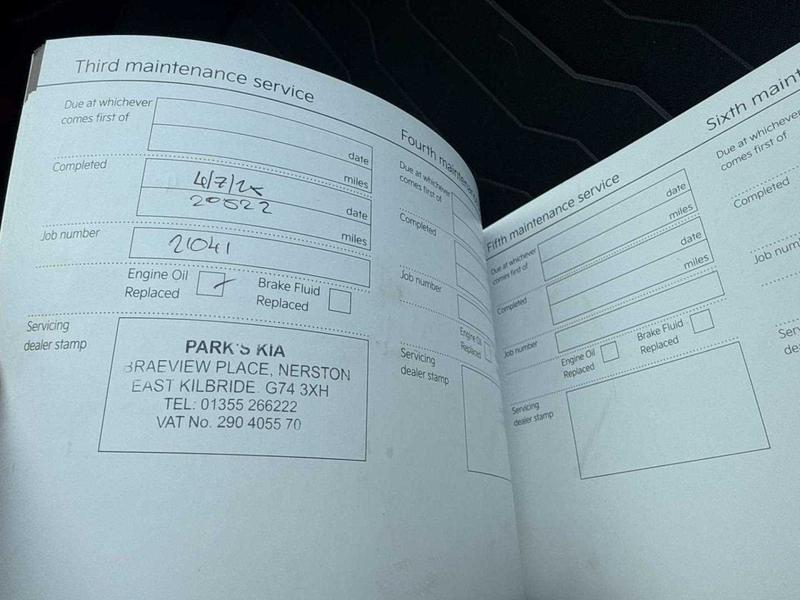 Third maintenance service
Due at whichever
comes first of
date
miles
Completed
4/7/25
date
20522
miles
Job number
21041
Engine Oil
Replaced
Brake Fluid
Replaced
Servicing
dealer stamp
PARK'S KIA
BRAEVIEW PLACE, NERSTON
EAST KILBRIDE. G74 3XH
TEL: 01355 266222
VAT No. 290 4055 70
Fourth
Due at whichever
comes first of
Completed
Job number
Engine Oil
Replaced
Servicing
dealer stamp
Fifth maintenance service
Due at whichever
comes first of
date
miles
Completed
date
miles
Job number
Engine Oil
Replaced
Brake Fluid
Replaced
Servicing
dealer stamp
Sixth
Due at whichever
comes first of
Completed